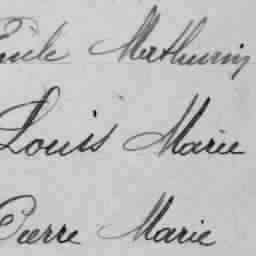 Emile Mathurin
Louis Marie
Pierre Marie